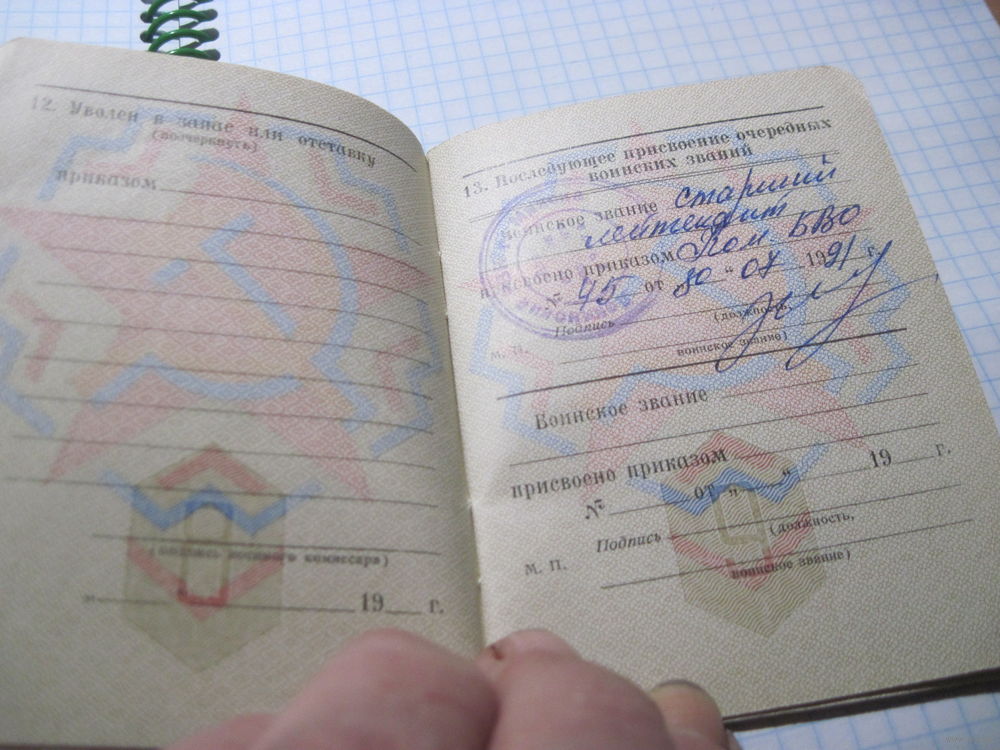 12. Уволен в запас или отставку
(подчеркнуть)
приказом
(подпись военного комиссара)
19 г.
13. Последующее присвоение очередных
воинских званий
Воинское звание старший
лейтенант
присвоено приказом Ком БВО
№ 45 от 07 1991 г.
Подпись
(должность,
м. п.
воинское звание)
Воинское звание
присвоено приказом
№ от „ “ 19 г.
Подпись
(должность,
м. п.
воинское звание)